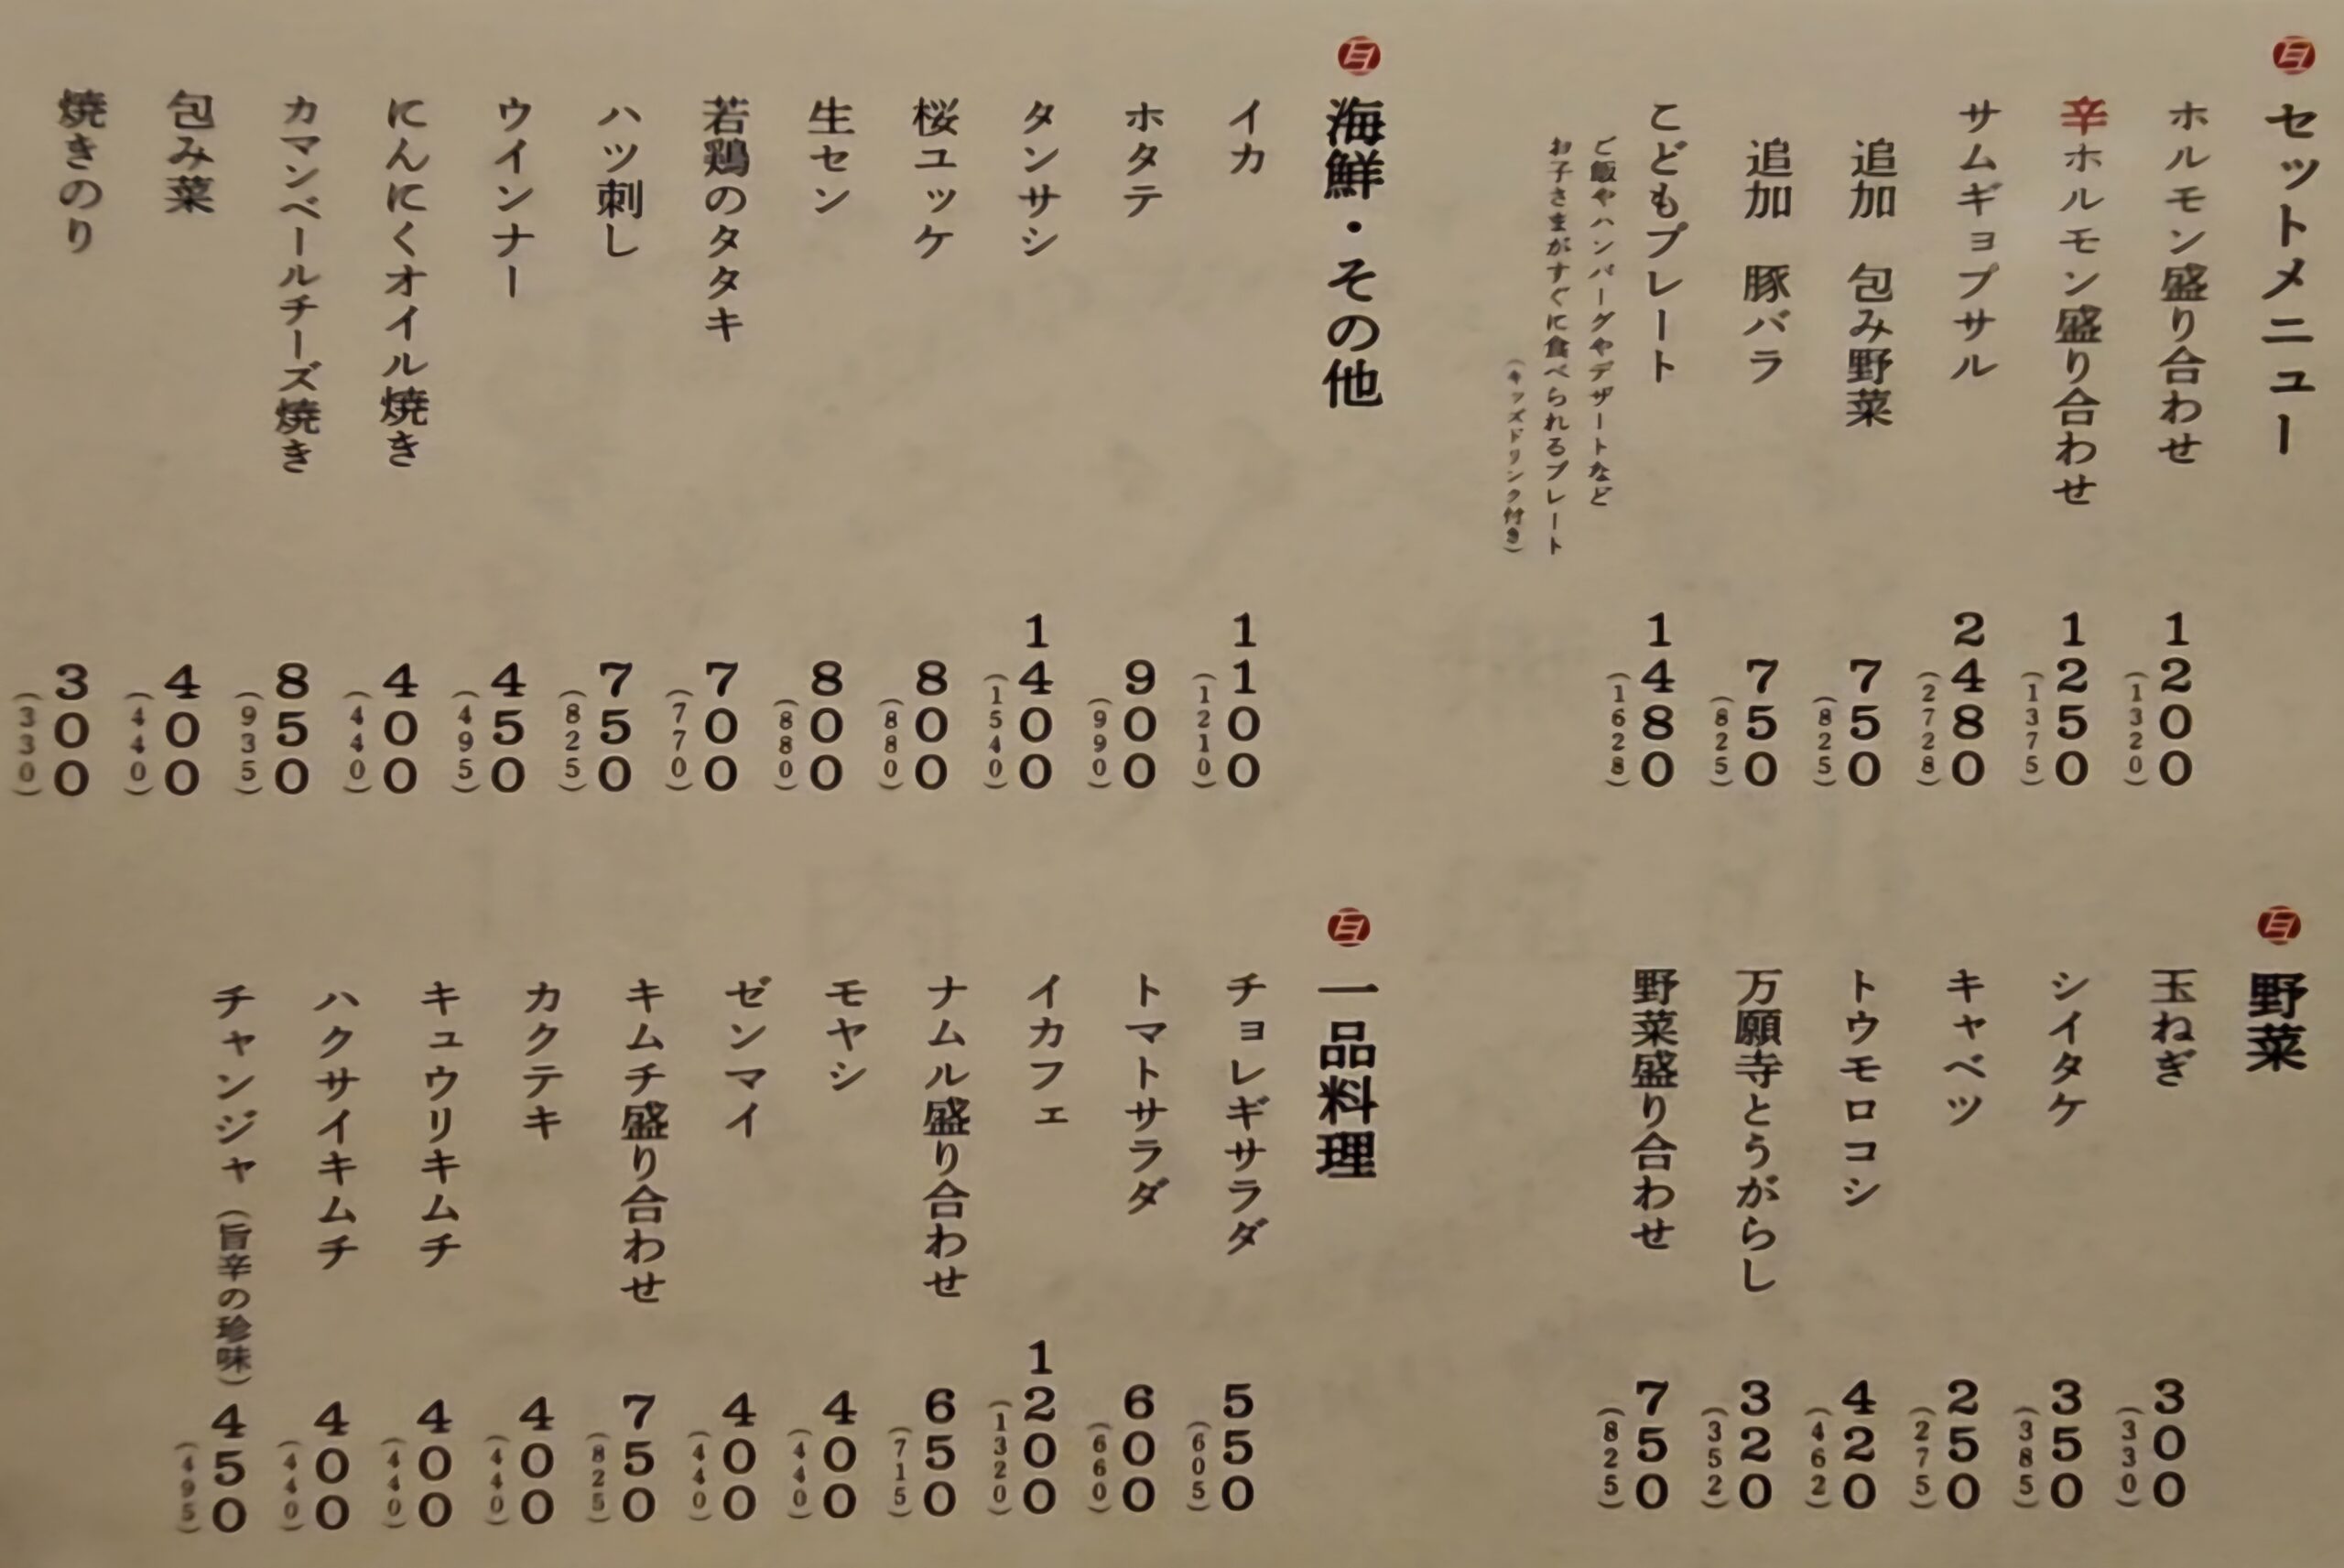 セットメニュー
ホルモン盛り合わせ 1200 (1320)
辛ホルモン盛り合わせ 1250 (1375)
サムギョプサル 2480 (2728)
追加 包み野菜 750 (825)
追加 豚バラ 750 (825)
こどもプレート 1480 (1628)
ご飯やハンバーグやデザートなど
お子さまがすぐに食べられるプレート
(キッズドリンク付き)
海鮮・その他
イカ 1100 (1210)
ホタテ 900 (990)
タンサシ 1400 (1540)
桜ユッケ 800 (880)
生セン 800 (880)
若鶏のタタキ 700 (770)
ハツ刺し 750 (825)
ウインナー 450 (495)
にんにくオイル焼き 400 (440)
カマンベールチーズ焼き 850 (935)
包み菜 400 (440)
焼きのり 300 (330)
野菜
玉ねぎ 300 (330)
シイタケ 350 (385)
キャベツ 250 (275)
トウモロコシ 420 (462)
万願寺とうがらし 320 (352)
野菜盛り合わせ 750 (825)
一品料理
チョレギサラダ 550 (605)
トマトサラダ 600 (660)
イカフェ 1200 (1320)
ナムル盛り合わせ 650 (715)
モヤシ 400 (440)
ゼンマイ 400 (440)
キムチ盛り合わせ 750 (825)
カクテキ 400 (440)
キュウリキムチ 400 (440)
ハクサイキムチ 400 (440)
チャンジャ(旨辛の珍味) 450 (495)